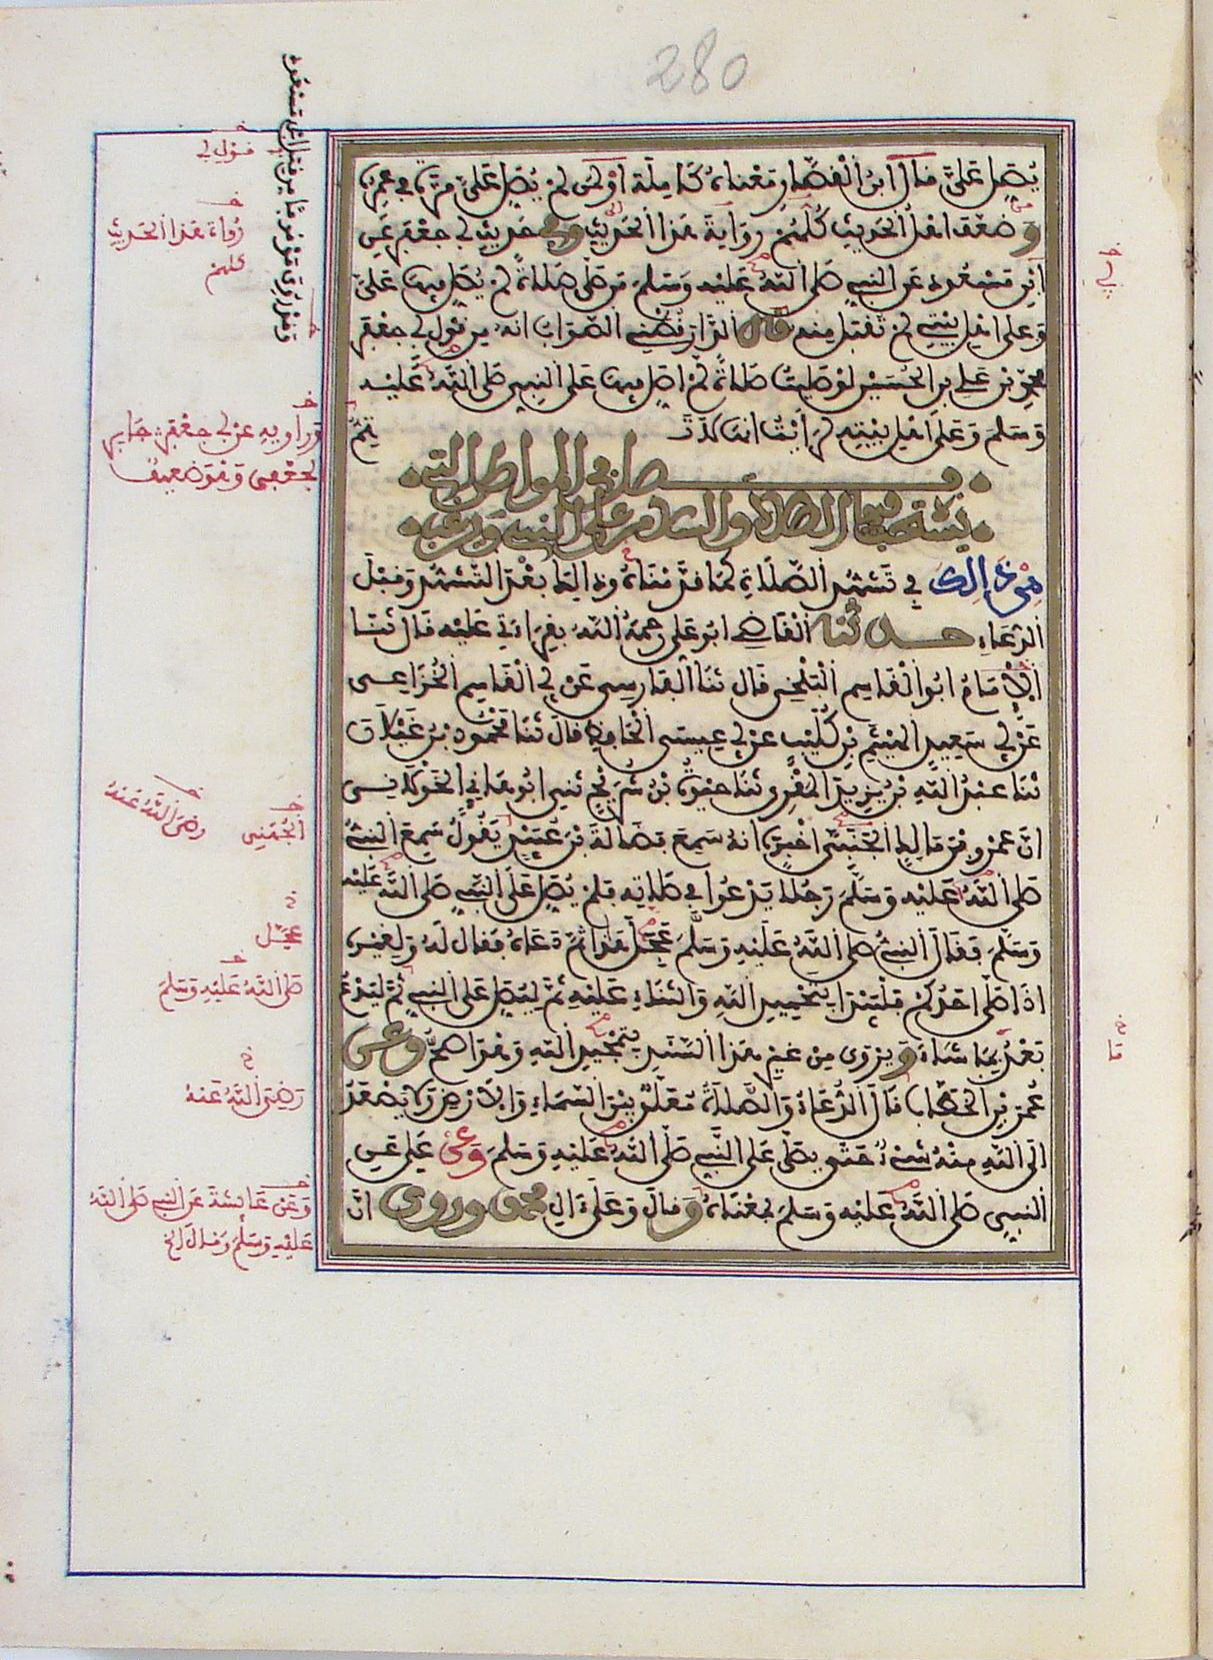 280
يُصَلِّ عَلَيَّ قال ابن الْقصَّار مَعْناهُ كَامِلَة أو لمن لَمْ يُصَلِّ عَلَيَّ مَرَّة في عمره
وَضعّف أهل الحَديث كُلُّهُمْ رِوَايَةَ هَذا الحَديثِ وفي حَديثِ أبي جعْفَر عَنِ
ابْنِ مَسْعُودٍ عَنِ النبيِ صَلى اللهُ عَلَيْهِ وَسَلمَ مَن صَلَّى صَلاةً لَمْ يُصَلِّ فيها عَلَيَّ
وَعلى أهْلِ بَيْتي لَمْ تُقْبَل مِنه قال الدَّارَقُطْني الصَّوَابُ انهُ مِن قوْل أبي جعْفَر
محمَّدِ بْن عَلي بن الحُسَيْن لوْ صَليتُ صَلاةً لَمْ أصَلِّ فيها عَلى النبي صَلى اللهُ عَلَيْهِ
وَسَلمَ وَعَلَى أهْلِ بَيْتِهِ لَرَأيْتُ أنهَا لا تَتِمُّ
فصل في المواطن التي
يستحب فيها الصلاة والسلام على النبي ويرغب
مِنْ ذَالِكَ في تَشَهُّدِ الصَّلَاةِ كَمَا قدَّمْنَاهُ وذالِكَ بَعْدَ التَّشَهُّدِ وَقبْلَ
الدُّعَاءِ حدثنا الْقَاضي أبُو عَلي رَحِمَهُ اللهُ بقِرَاءَتي عَلَيْهِ قَالَ ثنَا
الْإمَامُ أبُو الْقَاسِم الْبَلْخِي قالَ ثَنَا الفَارِسِي عَنْ أبي الْقَاسِم الْخُزَاعي
عَنْ أبي سَعِيدٍ الهَيْثَم بْنِ كُلَيْب عَن أبي عِيسَى الْحَافِظ قالَ ثَنَا مَحْمُود بْنُ غَيْلَانَ
ثنَا عَبْدُ اللهِ بْنُ يَزِيدَ المقْرِي ثنَا حَيْوَةُ بْنُ شُرَيْحٍ ثَني أبُو هَانِي الْخَوْلاني
أنَّ عَمْرو بْنَ مَالِكٍ الجَنْبي أخْبَرَهُ أنهُ سَمِعَ فَضَالَةَ بْنَ عُبَيْدٍ يَقُولُ سَمِعَ النبيُّ
صَلى اللهُ عَلَيْهِ وَسَلَّمَ رَجُلا يَدْعُوا في صَلاتِهِ فَلمْ يُصَلِّ عَلَى النبي صَلى اللهُ عَلَيْهِ
وَسَلَّمَ فَقَالَ النبيُّ صَلى اللهُ عَلَيْهِ وَسَلَّمَ عَجِلَ هَذا ثُمَّ دَعَاهُ فَقال لَهُ وَلِغَيْرِهِ
إذَا صَلَّى أحَدُكُمْ فَلْيَبْدَأ بِتَحْمِيدِ اللهِ وَالثنَاءِ عَلَيْهِ ثُمَّ لْيُصَلِّ عَلَى النبي ثُمَّ ليَدْعُ
بَعْدُ بمَا شَاءَ وَيُرْوَى مِن غَيْرِ هَذا السَّنَدِ بتَمْجِيدِ اللهِ وَهُوَ أصَحُّ وعن
عُمَرَ بْنِ الخَطَّابِ قَالَ الدُّعَاءُ وَالصَّلاةُ مُعَلَّقٌ بَيْنَ السَّمَاءِ وَالأرْضِ وَلا يَصْعَدُ
إلى اللهِ مِنْهُ شَيْءٌ حَتى يصَلَّى عَلَى النَّبي صَلَّى اللهُ عَلَيْهِ وَسَلمَ وَعَنْ عَلِي عَنِ
النبي صَلى اللهُ عَلَيْهِ وَسَلمَ بمَعْنَاهُ وَقالَ وَعَلَى آلِ محمد وروي أنَّ
قوْل أبي
رُوَاةَ هَذا الحَديثِ
كلهمْ
وَرَاوِيهِ عن أبي جعْفَر جَابِر
الجعْفي وَهُوَ ضَعِيف
الجُهَني
رضيَ اللهُ عَنهُ
عَجَّل
صَلى اللهُ عَلَيْهِ وَسَلمَ
رَضِيَ اللهُ عَنْهُ
وَعَنْ عَائشَةَ عَنِ النبي صَلى اللهُ
عَلَيْهِ وَسَلمَ وَقَالَ الخ